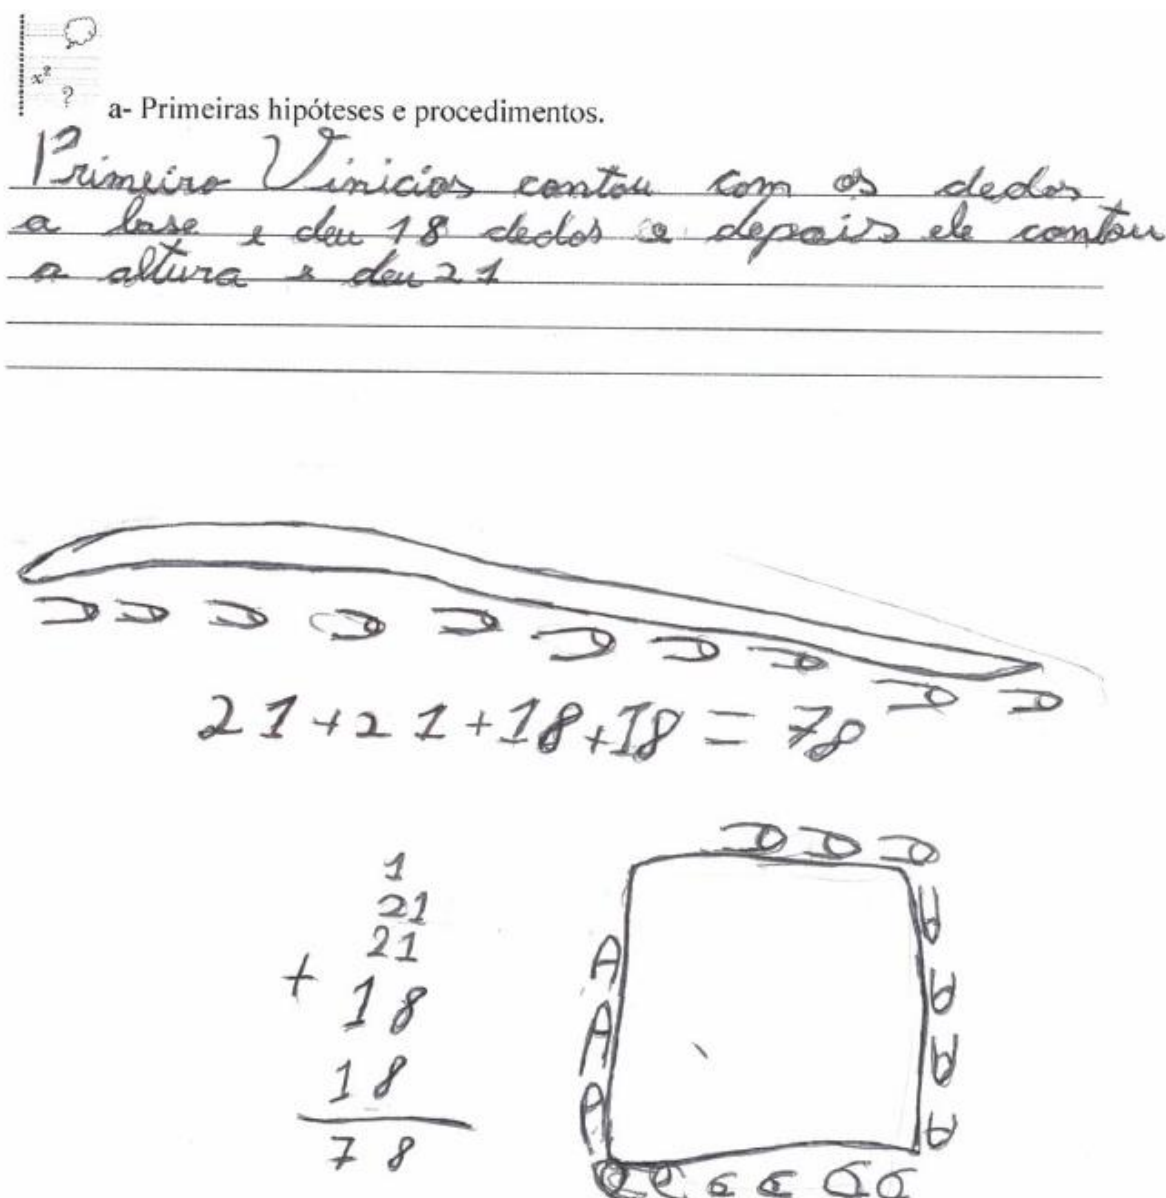 x²
?
a- Primeiras hipóteses e procedimentos.
Primeiro Vinicios contou com os dedos
a base e deu 18 dedos e depois ele contou
a altura e deu 21
21+21+18+18 = 78
1
21
21
+ 18
18
78